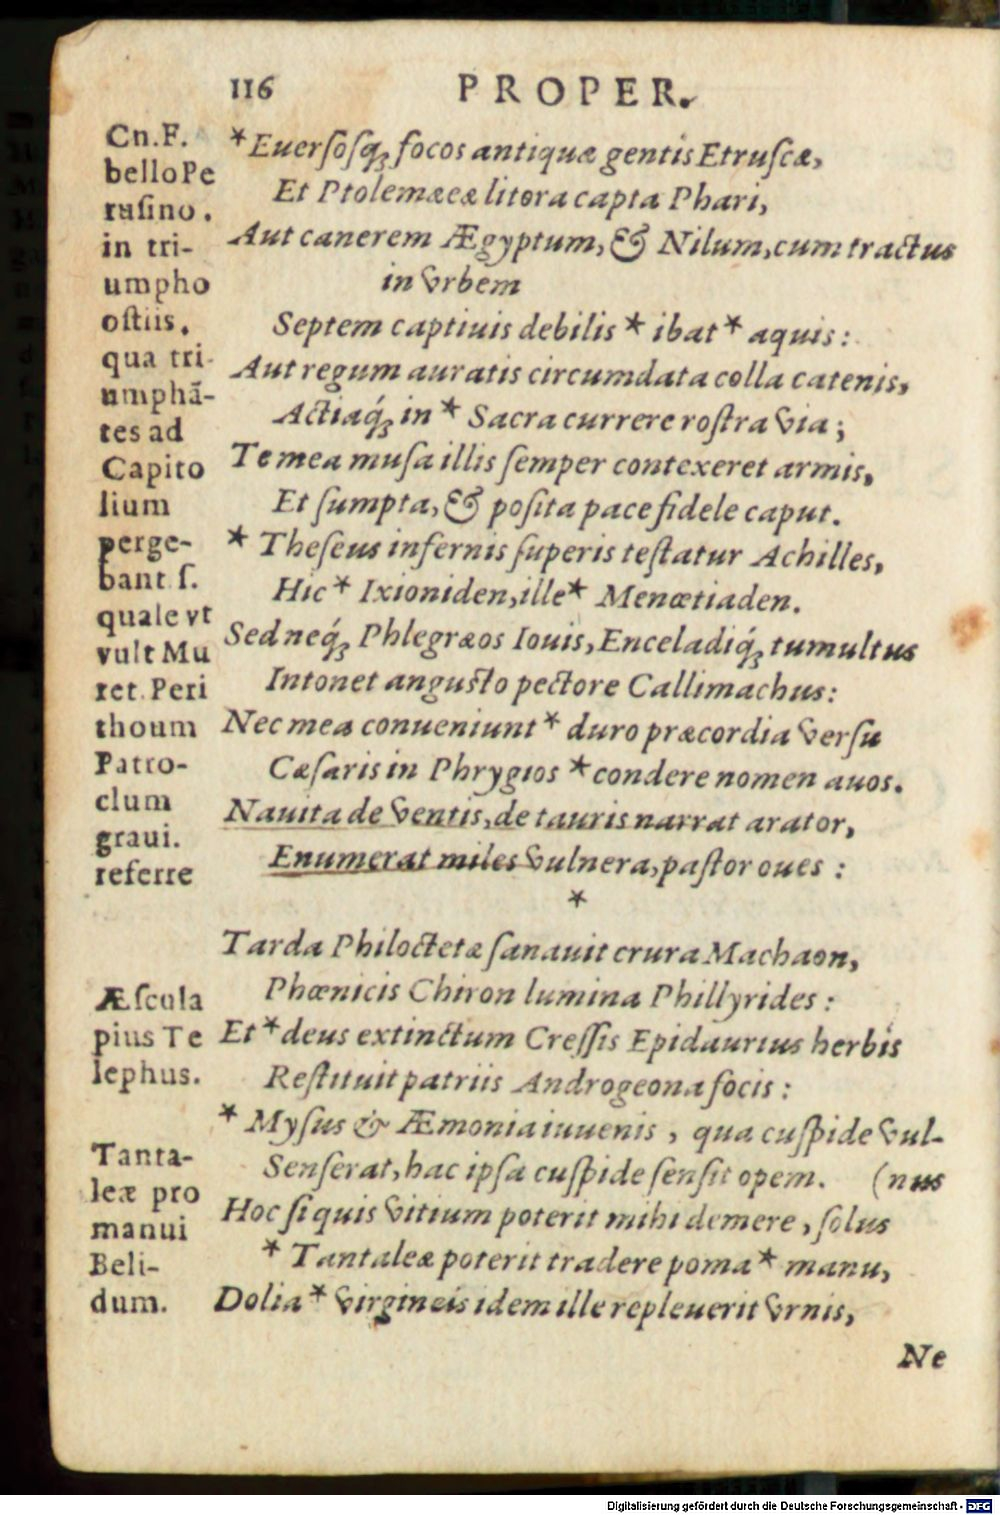 116 PROPER.
Cn.F.
bello Pe
rusino.
in tri-
umpho
ostiis.
qua tri-
umphã-
tes ad
Capito
lium
perge-
bant. ſ.
quale vt
vult Mu
ret. Peri
thoum
Patro-
clum
graui.
referre
Æſcula
pius Te
lephus.
Tanta-
leæ pro
manui
Beli-
dum.
*Euerſoſq́ꝫ focos antiquæ gentis Etruſcæ,
Et Ptolemæeæ litora capta Phari,
Aut canerem Ægyptum, & Nilum, cum tractus
in vrbem
Septem captiuis debilis * ibat * aquis:
Aut regum auratis circumdata colla catenis,
Actiaq́ꝫ in * Sacra currere roſtra via;
Te mea muſa illis ſemper contexeret armis,
Et ſumpta, & poſita pace fidele caput.
* Theſeus infernis ſuperis teſtatur Achilles,
Hic * Ixioniden, ille * Menœtiaden.
Sed neq́ꝫ Phlegræos Iouis, Enceladiq́ꝫ tumultus
Intonet anguſto pectore Callimachus:
Nec mea conueniunt * duro præcordia verſu
Cæſaris in Phrygios * condere nomen auos.
Nauita de ventis, de tauris narrat arator,
Enumerat miles vulnera, paſtor oues:
*
Tarda Philoctetæ ſanauit crura Machaon,
Phœnicis Chiron lumina Phillyrides:
Et * deus extinctum Creſſis Epidaurius herbis
Reſtituit patriis Androgeona focis:
* Myſus & Æmonia iuuenis, qua cuſpide vul-
Senſerat, hac ipſa cuſpide ſenſit opem. (nus
Hoc ſi quis vitium poterit mihi demere, ſolus
* Tantaleæ poterit tradere poma * manu,
Dolia * virgineis idem ille repleuerit vrnis,
Ne
Digitalisierung gefördert durch die Deutsche Forschungsgemeinschaft - DFG